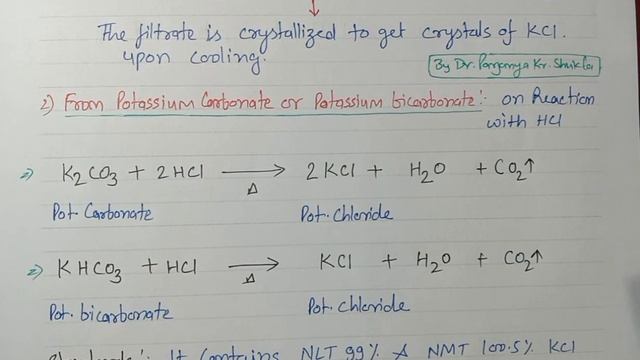 The filtrate is crystallized to get crystals of KCl.
upon cooling.
By Dr. Parjanya Kr. Shukla
2) From Potassium Carbonate or Potassium bicarbonate:- on Reaction
with HCl
1) K2CO3 + 2HCl →Δ 2 KCl + H2O + CO2↑
Pot. Carbonate Pot. Chloride
2) KHCO3 + HCl →Δ KCl + H2O + CO2↑
Pot. bicarbonate Pot. chloride
It contains NLT 99% & NMT 100.5% KCl